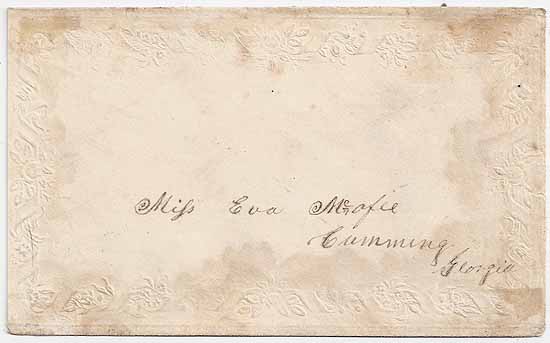 Miss Eva McAfie
Cumming
Georgia